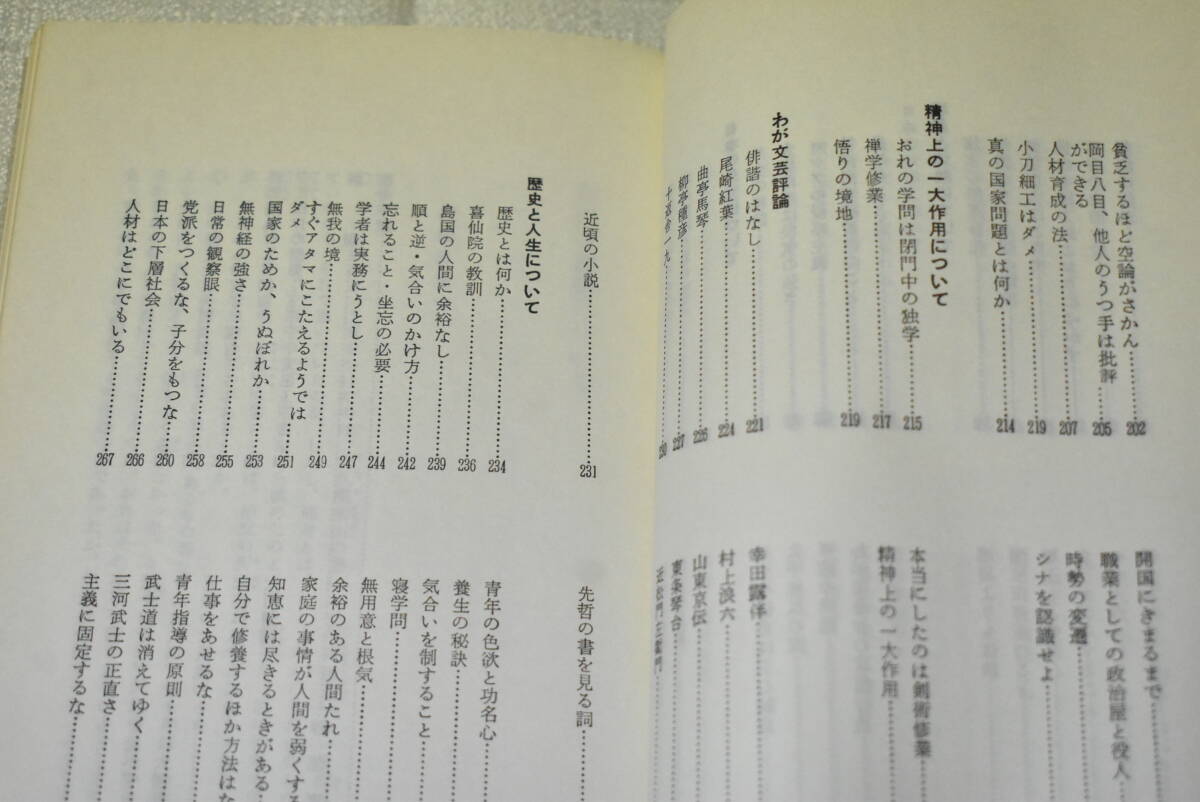 貧乏するほど空論がさかん……202
岡目八目、他人のうつ手は批評
ができる……205
人材育成の法……207
小刀細工はダメ……219
真の国家問題とは何か……214
開国にきまるまで
職業としての政治屋と役人
時勢の変遷
シナを認識せよ
精神上の一大作用について
おれの学問は閉門中の独学……215
禅学修業……217
悟りの境地……219
本当にしたのは剣術修業
精神上の一大作用
わが文芸評論
俳諧のはなし……221
尾崎紅葉……224
曲亭馬琴……226
柳亭種彦……227
十返舎一九……230
幸田露伴
村上浪六
山東京伝
東条琴台
近松門左衛門
近頃の小説……231
先哲の書を見る詞
歴史と人生について
歴史とは何か……234
喜仙院の教訓……236
島国の人間に余裕なし……239
順と逆・気合いのかけ方……242
忘れること・坐忘の必要……244
学者は実務にうとし……247
無我の境……249
すぐアタマにこたえるようでは
ダメ……251
国家のためか、うぬぼれか……253
無神経の強さ……255
日常の観察眼……258
党派をつくるな、子分をもつな……260
日本の下層社会……266
人材はどこにでもいる……267
青年の色欲と功名心
養生の秘訣
気合いを制すること
寝学問
無用意と根気
余裕のある人間たれ
家庭の事情が人間を弱くする
知恵には尽きるときがある
自分で修養するほか方法はな
仕事をあせるな
青年指導の原則
武士道は消えてゆく
三河武士の正直さ
主義に固定するな